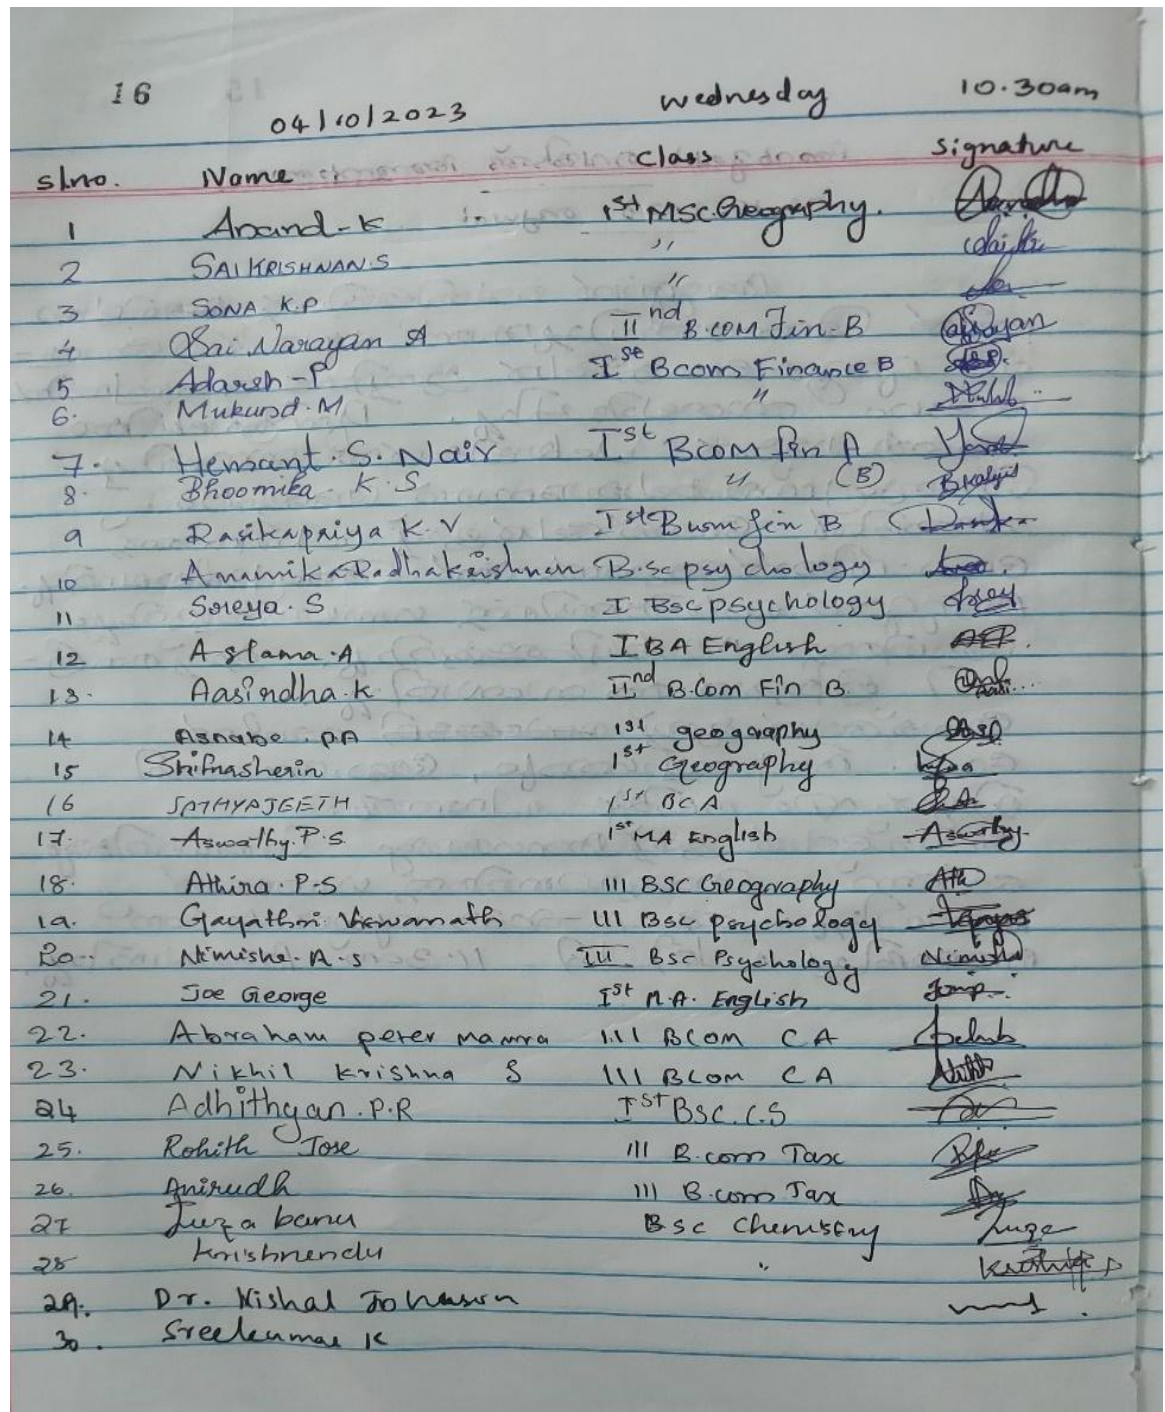 16
04/10/2023 wednesday 10.30am
sl.no. Name Class Signature
1 Anand-K 1st MSc.Geography.
2 SAIKRISHNAN.S "
3 SONA K.P "
4 Sai Narayan A IInd B.com Fin-B
5 Adarsh-P Ist Bcom Finance B
6. Mukund.M "
7. Hemant.S.Nair Ist Bcom fin A
8. Bhoomika K.S " (B)
9 Rasikapriya K.V Ist Bcom fin B
10 Anamika Radhakrishnan B.sc psychology
11 Sreya.S I Bsc psychology
12 Aslama.A I BA English
13. Aasindha.K IInd B.Com Fin B
14 Asnabe.P.A 1st geography
15 Shifnasherin 1st Geography
16 SATHYAJEETH 1st BCA
17. Aswathy.P.S. 1st MA English Aswathy
18. Athira.P-S III BSC Geography
19. Gayathri Viswanath III Bsc psychology
20. Nimisha.A.S III Bsc Psychology Nimisha
21. Joe George Ist M.A. English
22. Abraham peter mamra III BCom CA
23. Nikhil Krishna S III BCom CA
24 Adhithyan.P.R Ist Bsc.C.S
25. Rohith Jose III B.com Tax
26. Anirudh III B.com Tax
27 Luza banu Bsc Chemistry Luza
28 Krishnendu "
29. Dr. Nishal Johnson
30. Sreekumar K